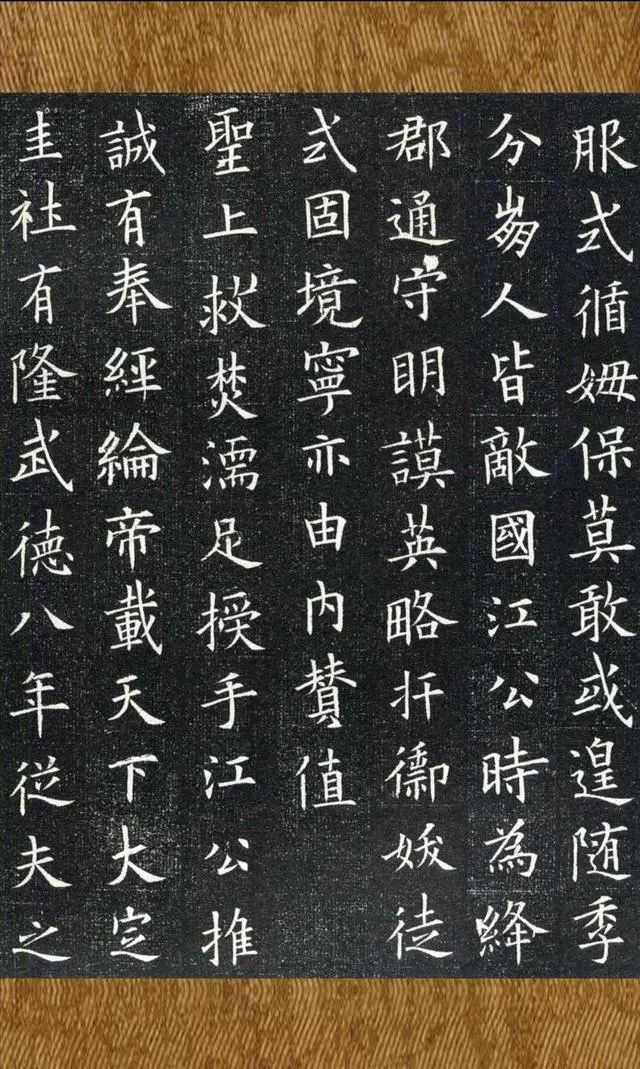 服式循姆保莫敢或遑随季
分崩人皆敵國江公時為絳
郡通守眀謨英略扞御媛徒
式固境寧亦由内贊值
聖上救焚濡足授手江公推
誠有奉經綸帝載天下大定
圭社有隆武德八年従夫之